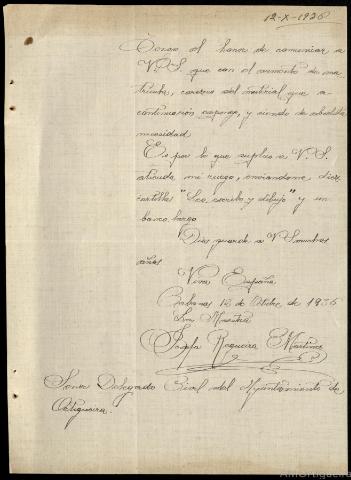 12-X-1936
Tengo el honor de comunicar a
V. S. que con el aumento de ma
trícula, carezco del material que a
continuación expongo, y siendo de absoluta
necesidad
Es por lo que suplico a V. S.
atienda mi ruego, enviándome diez
cartillas "Leo, escribo y dibujo" y un
banco largo
Dios guarde a V S muchos
años
Viva España
Cabanas 12 de Octbre de 1936
La Maestra
Josefa Regueira Martínez
Señor Delegado Civil del Ayuntamiento de
Ortigueira.
AMOrtigueira